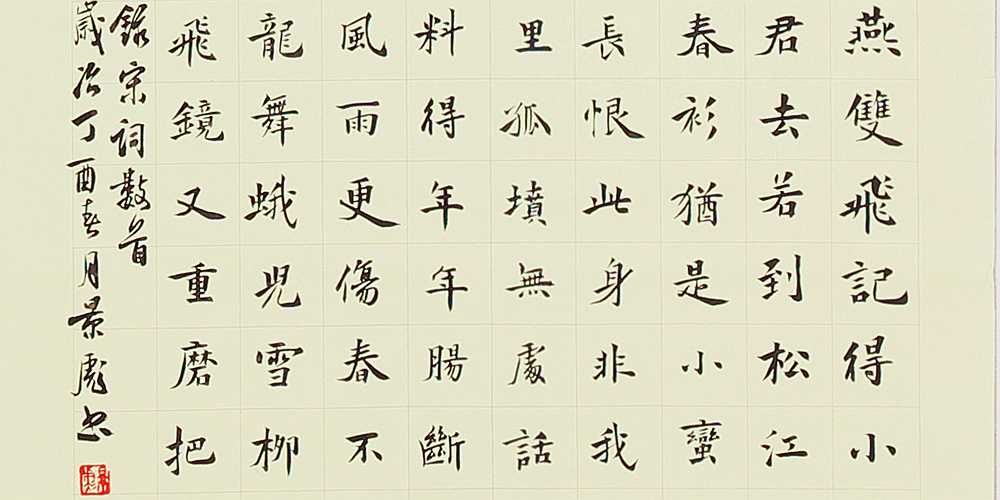 燕雙飛記得小
君去若到松江
春衫猶是小蠻
長恨此身非我
里孤墳無處話
料得年年腸斷
風雨更傷春不
龍舞蛾兒雪柳
飛鏡又重磨把
錄宋詞數首
歲次丁酉春月景彪書